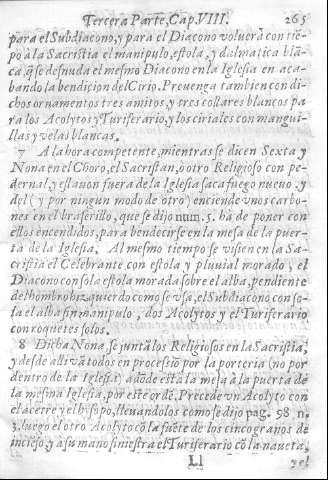 Tercera Parte, Cap. VIII. 265
para el Subdiacono, y para el Diacono voluerà con tie-
po à la Sacristia el manipulo, estola, y dalmatica blā-
ca, q̄ se desnuda el mesmo Diacono en la Iglesia en aca-
bando la bendicion del Cirio. Preuenga tambien con di-
chos ornamentos tres amitos, y tres collares blancos pa
ra los Acolytos y Turiferario, y los ciriales con mangui-
llas y velas blancas.
7 A la hora competente, mientras se dicen Sexta y
Nona en el Choro, el Sacristan, ò otro Religioso con pe-
dernal, y eslauon fuera de la Iglesia saca fuego nueuo, y
del (y por ningun modo de otro) enciende vnos carbo-
nes en el braserillo, que se dijo num. 5. hà de poner con
ellos encendidos, para bendecirse en la mesa de la puer-
ta de la Iglesia. Al mesmo tiempo se visten en la Sa-
cristia el Celebrante con estola y pluuial morado, el
Diacono con sola estola morada sobre el alba, pendiente
del hombro hizquierdo como se vsa, el Subdiacono con so-
la el alba sin manipulo, dos Acolytos y el Turiferario
con roquetes solos.
8 Dicha Nona, se juntā los Religiosos en la Sacristia,
y desde alli vā todos en procession por la porteria (no por
dentro de la Iglesia) adōde està la mesa à la puerta de
la mesma Iglesia, por este ordē. Precede vn Acolyto con
el acetre y el hysopo, lleuandolos como se dijo pag. 98 n.
3. luego el otro Acolyto cō la fuēte de los cinco granos de
inciēso, y a su mano siniestra el Turiferario cō la naueta,
Ll y el